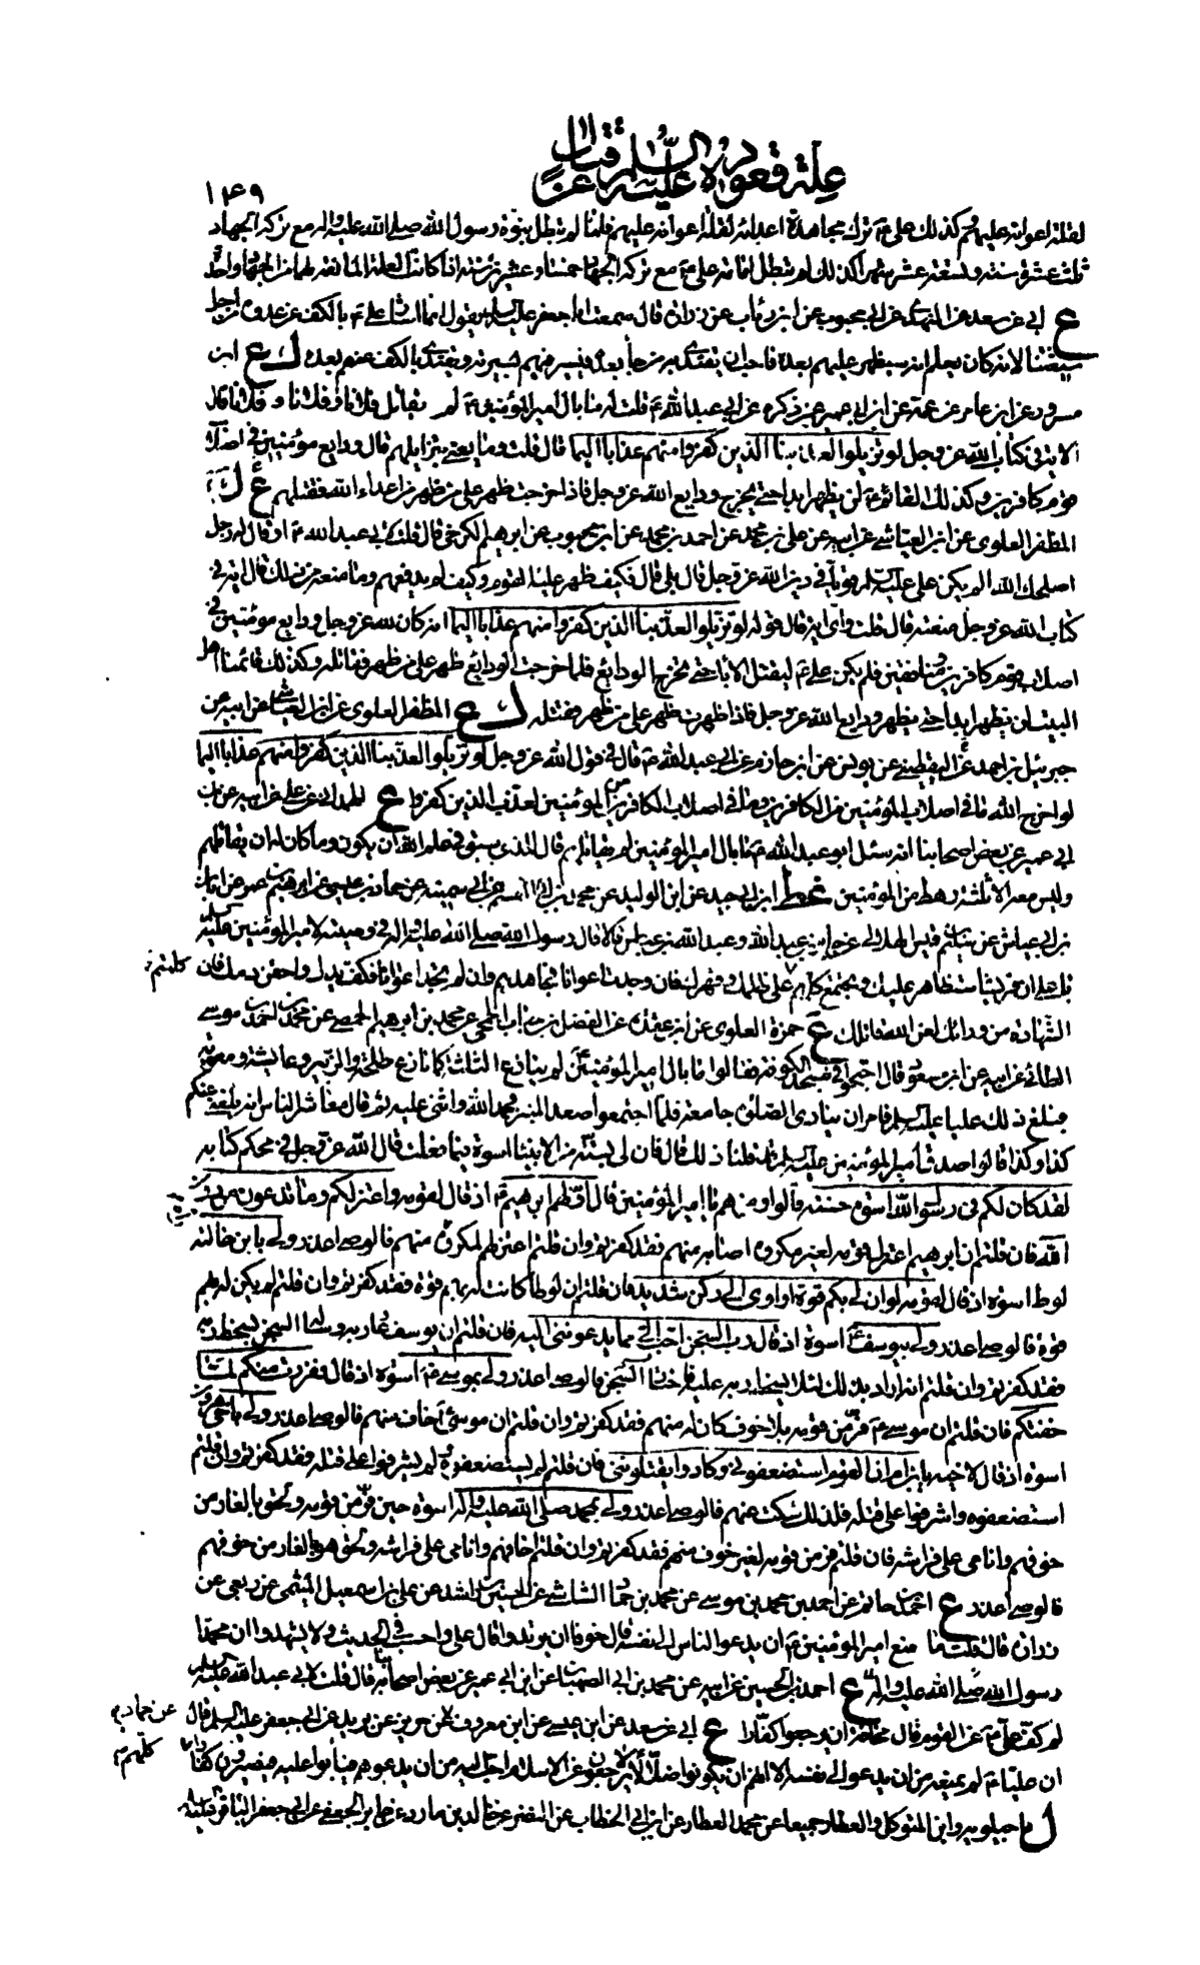 علة قعوده عليه السلم عن قتال
١٤٩
لقلة اعوانه عليهم كذلك علي ع ترك مجاهدة اعدائه لقلة اعوانه عليهم فلما لم تبطل نبوة رسول الله صلى الله عليه واله مع تركه الجهاد
ثلث عشرة سنة وتسعة عشر شهرا كذلك لم تبطل امامة علي ع مع تركه الجهاد خمسا وعشرين سنة اذا كانت العلة المانعة لهما من الجهاد واحدة
ع ابي عن سعد عن النهدي عن ابن محبوب عن ابن رئاب عن زرارة قال سمعت ابا جعفر عليه السلم يقول انما اشار علي ع بالكف عن عدوه من اجل
شيعتنا لانه كان يعلم انه سيظهر عليهم بعده فاحب ان يقتدي به من جاء بعده فيسير فيهم بسيرته ويقتدي بالكف عنهم بعده ك ع ابن
مسرور عن ابن عامر عن عمه عن ابن ابي عمير عمن ذكره عن ابي عبد الله ع قلت له ما بال امير المؤمنين ع لم يقاتل فلانا وفلانا وفلانا قال
لاية في كتاب الله عز وجل لو تزيلوا لعذبنا الذين كفروا منهم عذابا اليما قال قلت وما يعني بتزايلهم قال ودايع مؤمنين في اصلاب
قوم كافرين وكذلك القائم ع لن يظهر ابدا حتى يخرج ودايع الله عز وجل فاذا خرجت ظهر على من ظهر من اعداء الله فقتلهم ع ك
المظفر العلوي عن ابن العياشي عن ابيه عن علي بن محمد عن احمد بن محمد عن ابن محبوب عن ابرهيم الكرخي قال قلت لابي عبد الله ع او قال له رجل
اصلحك الله الم يكن علي عليه السلم قويا في دين الله عز وجل قال بلى قال فكيف ظهر عليه القوم وكيف لم يدفعهم وما منعه من ذلك قال اية في
كتاب الله عز وجل منعته قال قلت واي اية قال قوله لو تزيلوا لعذبنا الذين كفروا منهم عذابا اليما انه كان لله عز وجل ودايع مؤمنين في
اصلاب قوم كافرين ومنافقين فلم يكن علي ع ليقتل الاباء حتى تخرج الودائع فلما خرجت الودايع ظهر على من ظهر فقاتله وكذلك قائمنا اهل
البيت لن يظهر ابدا حتى يظهر ودايع الله عز وجل فاذا ظهرت ظهر على من ظهر فقتله ك ع المظفر العلوي عن ابن العياشي عن ابيه عن
جبرئيل بن احمد عن اليقطيني عن يونس عن ابن حازم عن ابي عبد الله ع قال في قول الله عز وجل لو تزيلوا لعذبنا الذين كفروا منهم عذابا اليما
لو اخرج الله ما في اصلاب المؤمنين من الكافرين وما في اصلاب الكافرين من المؤمنين لعذب الذين كفروا ع الهمداني عن علي عن ابيه عن ابن
ابي عمير عن بعض اصحابنا انه سئل ابو عبد الله ع ما بال امير المؤمنين لم يقاتلهم قال الذي سبق في علم الله ان يكون وما كان له ان يقاتلهم
وليس معه الا ثلثة رهط من المؤمنين غط ابن ابي جيد عن ابن الوليد عن محمد بن ابي القاسم عن ابي سمينه عن حماد بن عيسى عن ابرهيم بن عمر عن ابان
بن ابي عياش عن سليم بن قيس الهلالي عن جابر بن عبد الله وعبد الله بن عباس قالا قال رسول الله صلى الله عليه واله في وصيته لامير المؤمنين عليه السلم
يا علي ان قريشا ستظاهر عليك وتجتمع كلهم على ظلمك وقهرك فان وجدت اعوانا فجاهدهم وان لم تجد اعوانا فكف يدك واحقن دمك فان كلمتهم
الشهادة من ورائك لعن الله قاتلك ع حمزة العلوي عن ابن عقدة عن الفضل بن حباب الجمحي عن محمد بن ابرهيم الحمصي عن محمد بن احمد بن موسى
الطائي عن ابيه عن ابن مسعود قال احتجوا في مسجد الكوفة فقالوا ما بال امير المؤمنين ع لم ينازع الثلاثة كما نازع طلحة والزبير وعايشة ومعوية
فبلغ ذلك عليا عليه السلم فامر ان ينادى الصلوة جامعة فلما اجتمعوا صعد المنبر فحمد الله واثنى عليه ثم قال معاشر الناس انه بلغني عنكم
كذا وكذا قالوا صدق امير المؤمنين عليه السلم قد قلنا ذلك قال فان لي بسنة من الانبياء اسوة فيما فعلت قال الله عز وجل في محكم كتابه
لقد كان لكم في رسول الله اسوة حسنة قالوا ومن هم يا امير المؤمنين قال اولهم ابرهيم ع اذ قال لقومه واعتزلكم وما تدعون من دون
الله فان قلتم ان ابرهيم اعتزل قومه لغير مكروه اصابه منهم فقد كفرتم وان قلتم اعتزلهم لمكروه منهم فالوصي اعذر ولي بابن خالته
لوط اسوة اذ قال لقومه لو ان لي بكم قوة او اوي الى ركن شديد فان قلتم ان لوطا كانت له بهم قوة فقد كفرتم وان قلتم لم يكن له بهم
قوة فالوصي اعذر ولي بيوسف ع اسوة اذ قال رب السجن احب الي مما يدعونني اليه فان قلتم ان يوسف دعا ربه وسئله السجن لسخط ربه
فقد كفرتم وان قلتم انه اراد بذلك لئلا يسخط ربه عليه فاختار السجن فالوصي اعذر ولي بموسى ع اسوة اذ قال ففررت منكم لما
خفتكم فان قلتم ان موسى ع فر من قومه بلا خوف كان له منهم فقد كفرتم وان قلتم ان موسى خاف منهم فالوصي اعذر ولي باخي هرون
اسوة اذ قال لاخيه يا ابن ام ان القوم استضعفوني وكادوا يقتلونني فان قلتم لم يستضعفوه ولم يشرفوا على قتله فقد كفرتم وان قلتم
استضعفوه واشرفوا على قتله فلذلك سكت عنهم فالوصي اعذر ولي بمحمد صلى الله عليه واله اسوة حين فر من قومه ولحق بالغار من
خوفهم وانامني على فراشه فان قلتم فر من قومه لغير خوف منهم فقد كفرتم وان قلتم خافهم وانامني على فراشه ولحق هو بالغار من خوفهم
فالوصي اعذر ع احمد بن حاتم عن احمد بن محمد بن موسى عن محمد بن حماد الشاشي عن الحسين بن راشد عن علي بن اسمعيل الميثمي عن ربعي عن
زرارة قال قلت ما منع امير المؤمنين ع ان يدعو الناس الى نفسه قال خوفا ان يرتدوا قال علي واحسب في الحديث ولا يشهدوا ان محمدا
رسول الله صلى الله عليه واله ع احمد بن الحسين عن ابيه عن محمد بن ابي الصهبان عن ابن ابي عمير عن بعض اصحابنا قال قلت لابي عبد الله عليه السلم
لم كف علي ع عن القوم قال مخافة ان يرجعوا كفارا ع ابي عن سعد عن ابن عيسى عن ابن معروف عن حماد عن حريز عن بريد عن ابي جعفر عليه السلم قال
ان عليا ع لم يمنعه من ان يدعو الى نفسه الا انهم ان يكونوا ضلالا لا يرجعون عن الاسلام احب اليه من ان يدعوهم فيأبوا عليه فيصيرون كفارا كلهم
ل ماجيلويه وابن المتوكل والعطار جميعا عن محمد العطار عن ابن ابي الخطاب عن النضر عن خالد بن ماد عن جابر الجعفي عن ابي جعفر الباقر عليه السلم